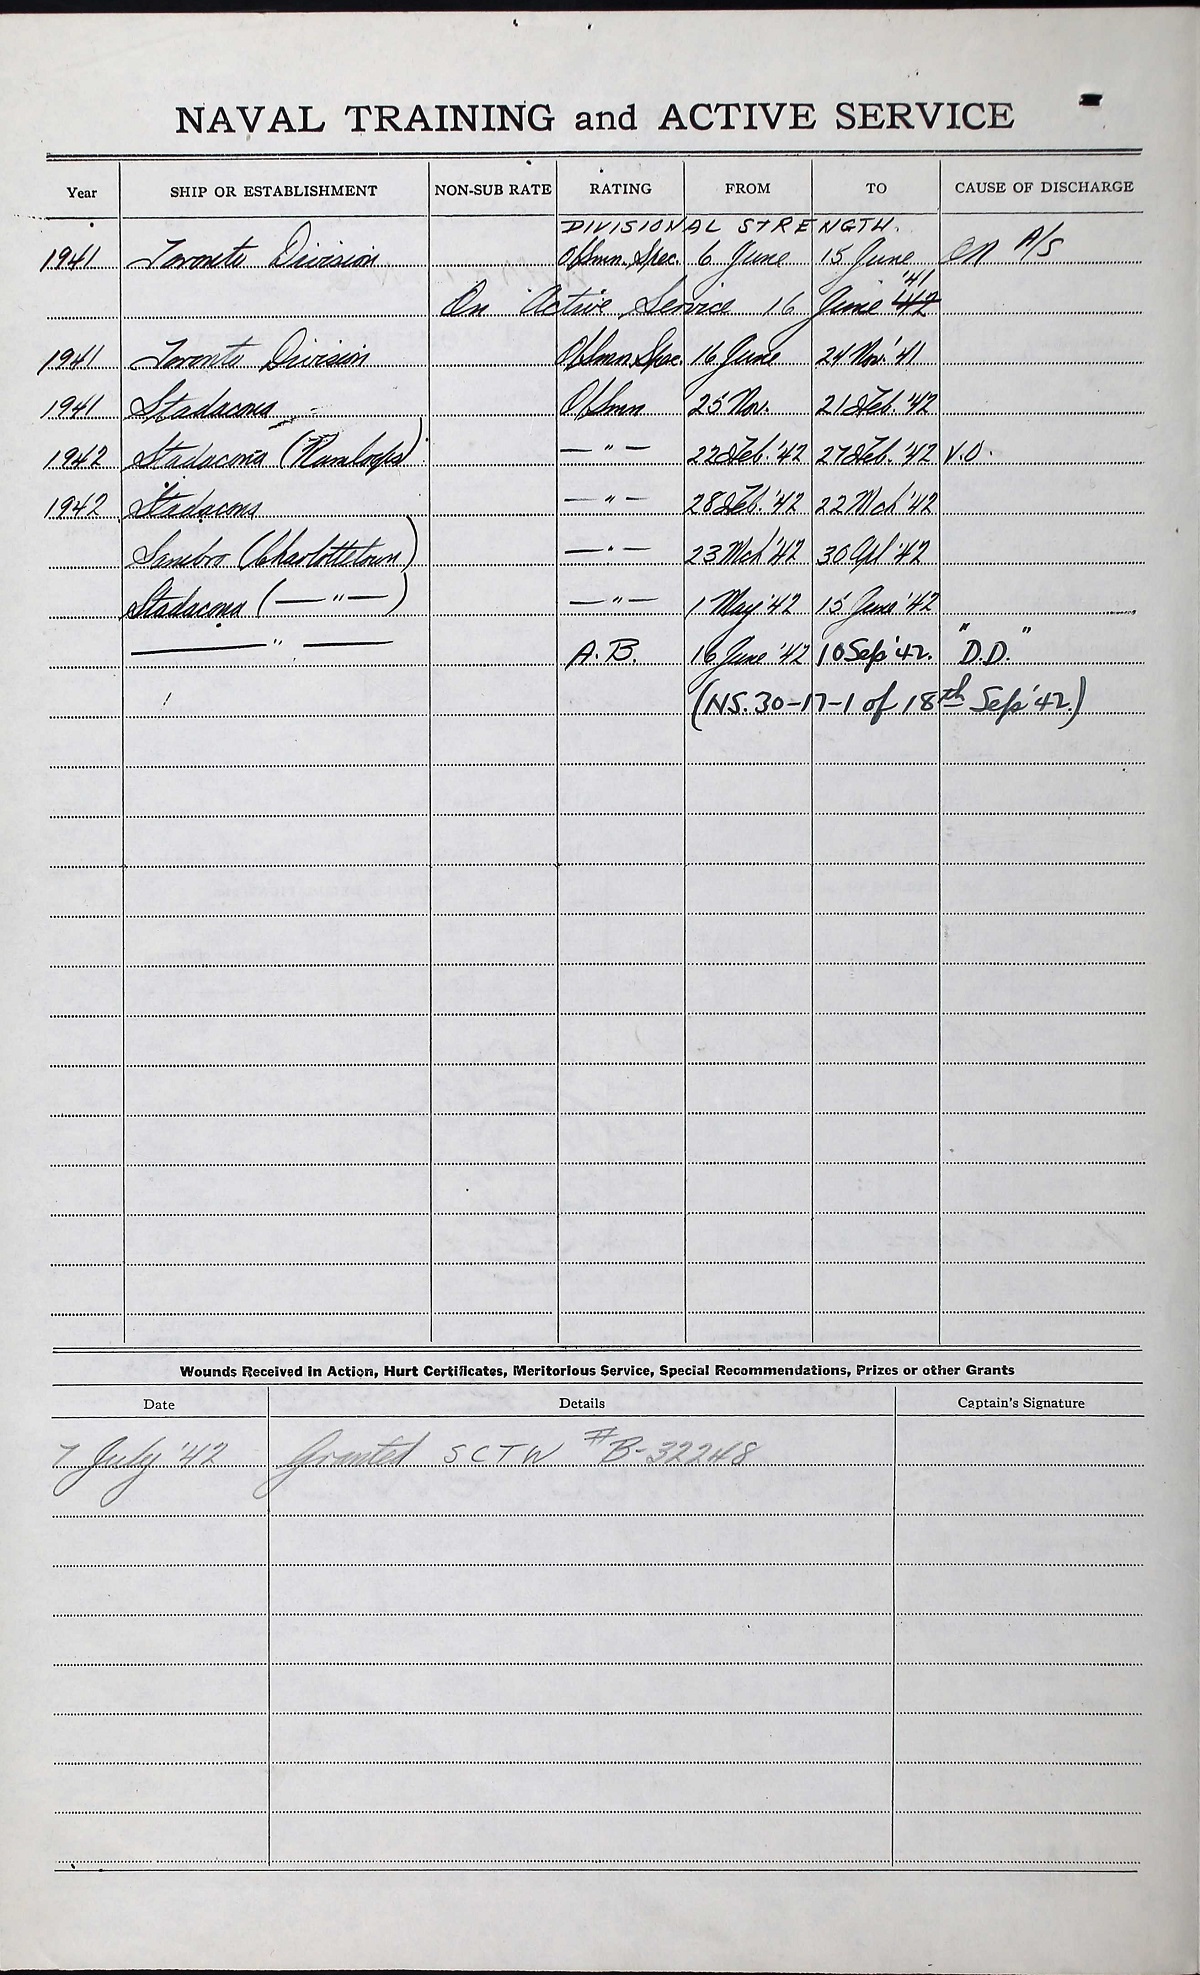 NAVAL TRAINING and ACTIVE SERVICE
Year SHIP OR ESTABLISHMENT NON-SUB RATE RATING FROM TO CAUSE OF DISCHARGE
DIVISIONAL STRENGTH.
1941 Toronto Division O/Smn Spec. 6 June 15 June On A/S
On Active Service 16 June '41 42
1941 Toronto Division O/Smn Spec. 16 June 24 Nov. '41
1941 Stadacona O/Smn 25 Nov. 21 Feb. '42
1942 Stadacona (Kamloops) — " — 22 Feb. '42 27 Feb. '42 V.O.
1942 Stadacona — " — 28 Feb. '42 22 Mch '42
Sambro (Charlottetown) — " — 23 Mch '42 30 Apl '42
Stadacona (— " —) — " — 1 May '42 15 June '42
— " — A.B. 16 June '42 10 Sep '42. "D.D."
(NS. 30-17-1 of 18th Sep '42.)
Wounds Received in Action, Hurt Certificates, Meritorious Service, Special Recommendations, Prizes or other Grants
Date Details Captain's Signature
7 July '42 Granted SCTW #B-32248